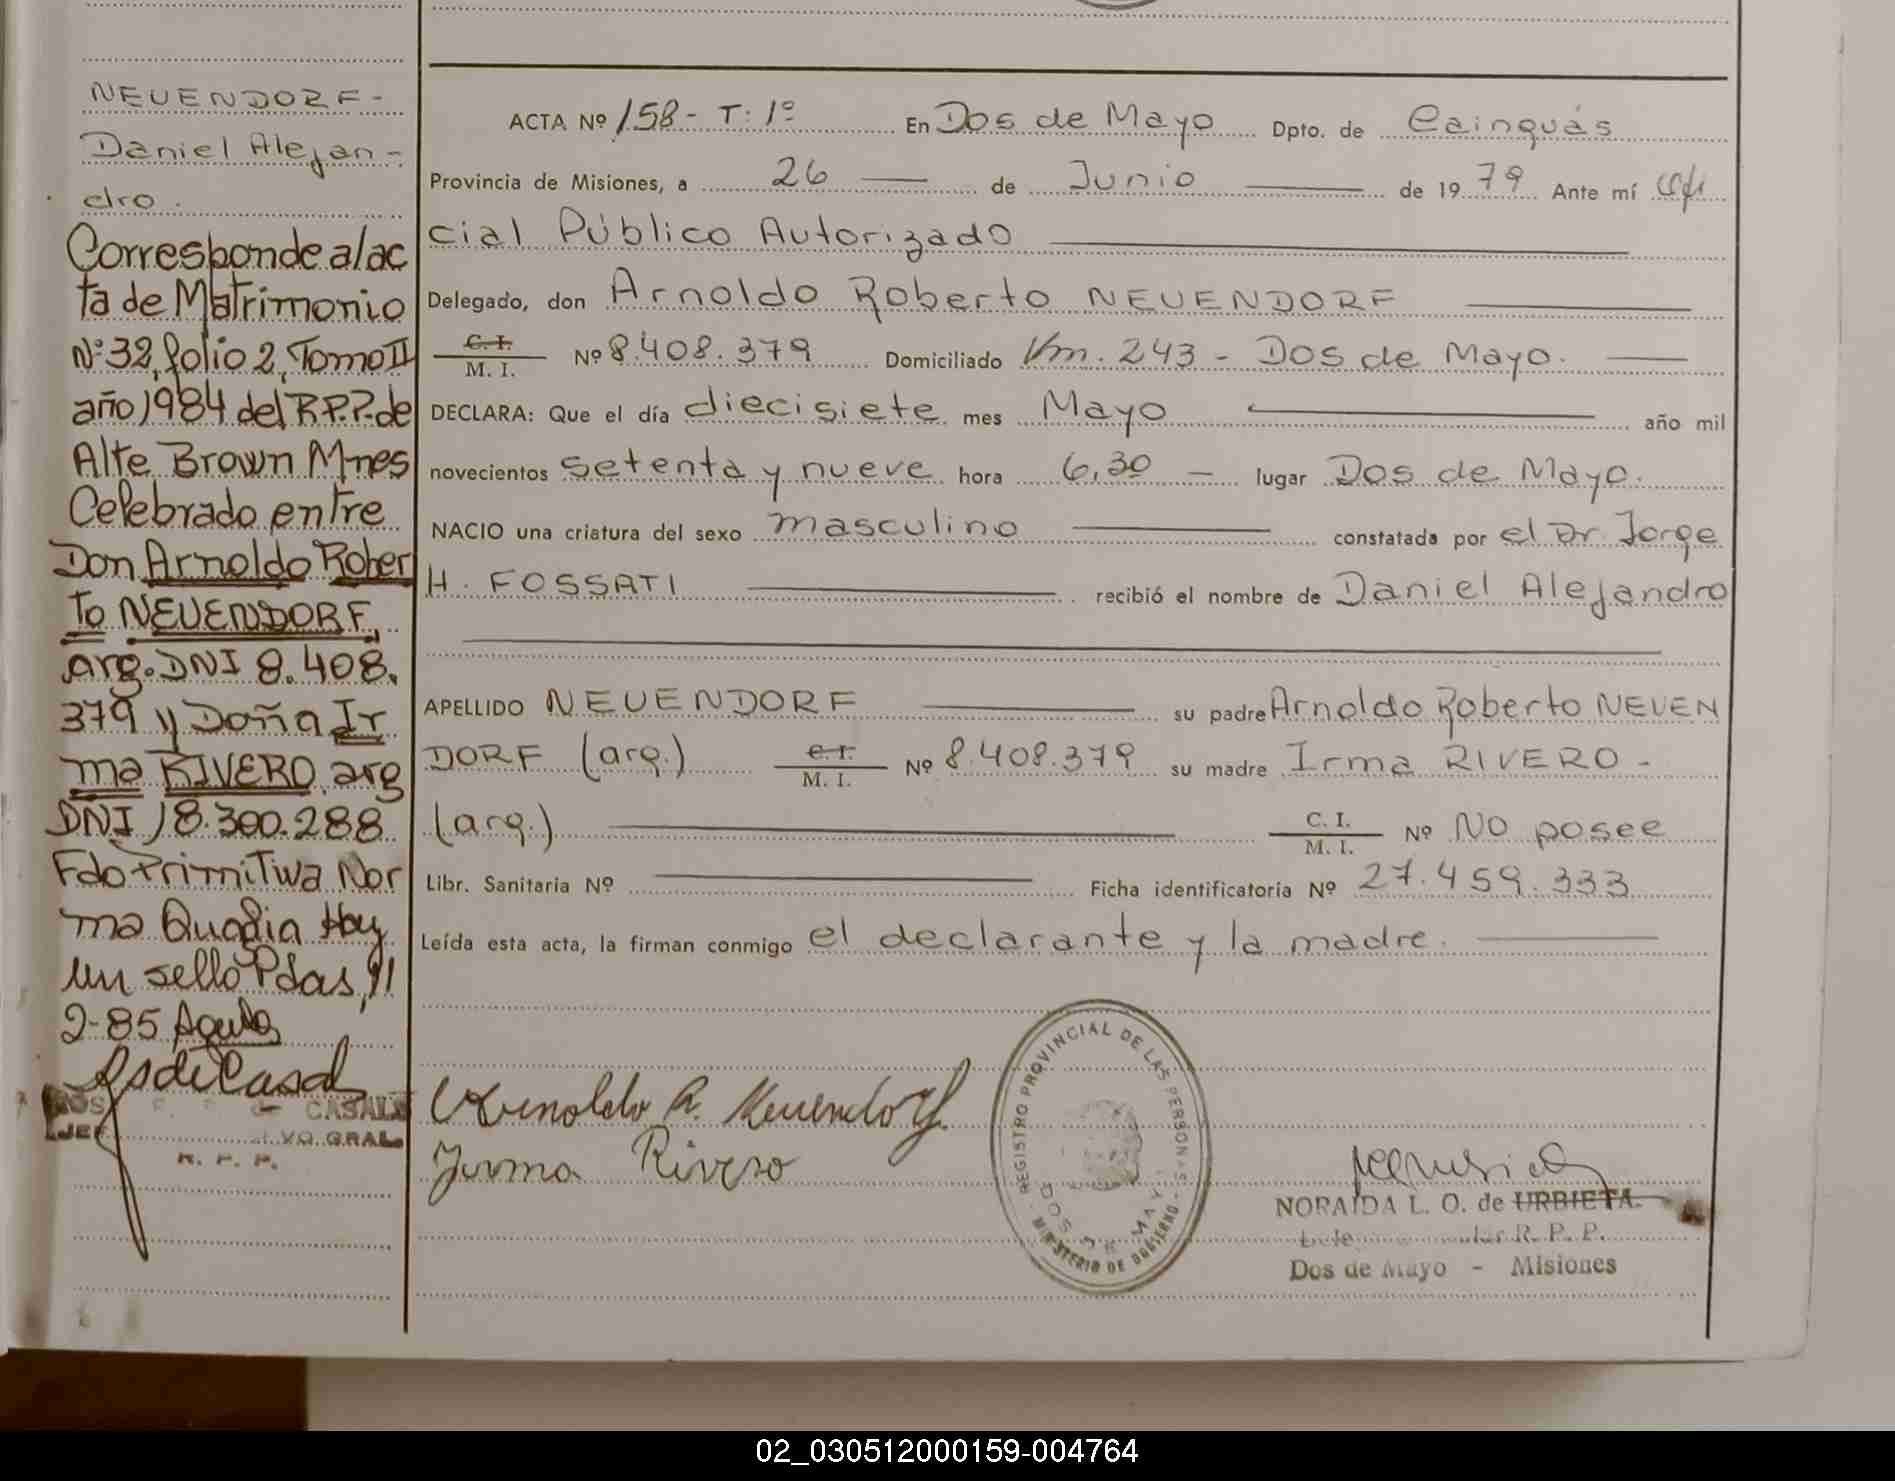 NEUENDORF-
Daniel Alejan-
dro.
Corresponde al ac
ta de Matrimonio
Nº 32, folio 2, Tomo II
año 1984 del R.P.P. de
Alte Brown Mnes
Celebrado entre
Don Arnoldo Rober
to NEUENDORF,
arg. DNI 8.408.
379 y Doña Ir
ma RIVERO, arg
DNI 18.300.288
Fdo Primitiva Nor
ma Hay
un sello Pdas, 11
2-85
CASALS
JEF VO GRAL.
R. P. P.
ACTA Nº 158- T: 1º En Dos de Mayo Dpto. de Cainguás
Provincia de Misiones, a 26 de Junio de 1979 Ante mí
cial Público Autorizado
Delegado, don Arnoldo Roberto NEUENDORF
C. I.
M. I. Nº 8.408.379 Domiciliado Km. 243 - Dos de Mayo.
DECLARA: Que el día diecisiete mes Mayo año mil
novecientos setenta y nueve hora 6,30 - lugar Dos de Mayo.
NACIO una criatura del sexo masculino constatada por el Dr. Jorge
H. FOSSATI recibió el nombre de Daniel Alejandro
APELLIDO NEUENDORF su padre Arnoldo Roberto NEUEN
DORF (arg.) C. I. M. I. Nº 8.408.379 su madre Irma RIVERO -
(arg.) C. I. M. I. Nº No posee
Libr. Sanitaria Nº Ficha identificatoria Nº 27.459.333
Leída esta acta, la firman conmigo el declarante y la madre.
Arnoldo R. Neuendorf
Irma Rivero
REGISTRO PROVINCIAL DE LAS PERSONAS
DOS DE MAYO
MINISTERIO DE GOBIERNO
NORAIDA L. O. de URBIETA
R. P. P.
Dos de Mayo - Misiones
02_030512000159-004764